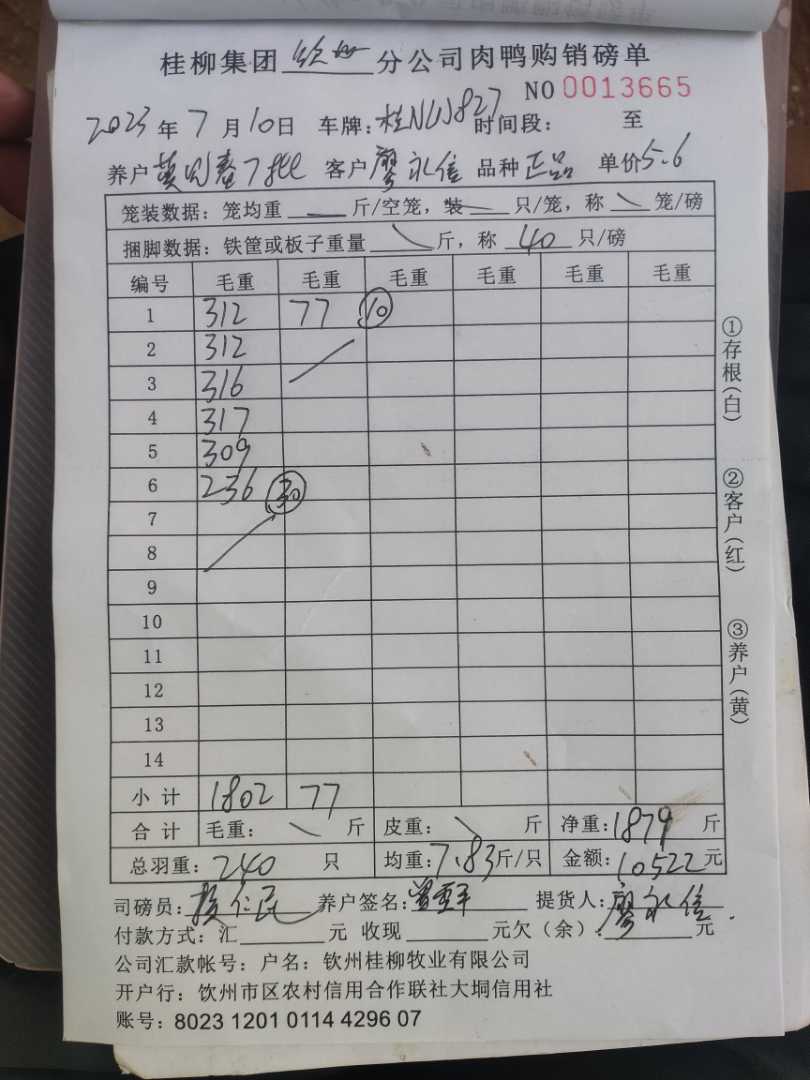 桂柳集团 钦州 分公司肉鸭购销磅单
NO 0013665
2023 年 7 月 10 日 车牌：桂NW827 时间段： 至
养户 黄 客户 廖永信 品种 正品 单价 5.6
笼装数据：笼均重 斤/空笼，装 只/笼，称 笼/磅
捆脚数据：铁筐或板子重量 斤，称 40 只/磅
编号 毛重 毛重 毛重 毛重 毛重 毛重
1 312 77 10
2 312
3 316
4 317
5 309
6 236 30
7
8
9
10
11
12
13
14
小 计 1802 77
合 计 毛重： 斤 皮重： 斤 净重：1879 斤
总羽重：240 只 均重：7.83 斤/只 金额：10522 元
司磅员： 仁民 养户签名： 提货人：廖永信
付款方式：汇 元 收现 元欠（余）： 元
公司汇款帐号：户名：钦州桂柳牧业有限公司
开户行：饮州市区农村信用合作联社大垌信用社
账号：8023 1201 0114 4296 07
①存根（白）
②客户（红）
③养户（黄）